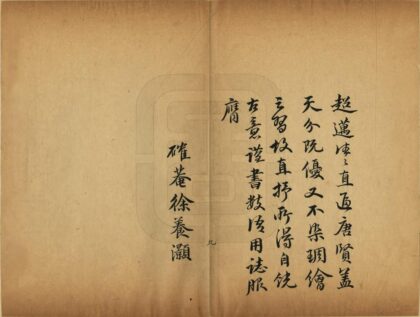 超邁渾渾直逼唐賢蓋
天分既優又不染琱繪
之習故直抒所得自饒
古意謹書數語用誌服
膺
確菴徐養灝
九